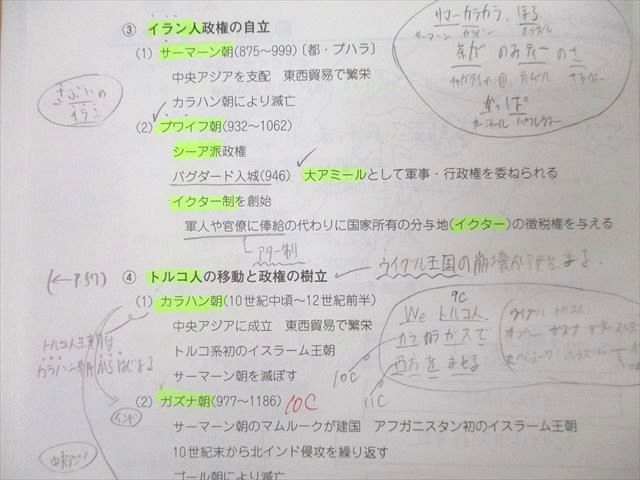 ③ イラン人政権の自立
(1) サーマーン朝(875～999)〔都・ブハラ〕
中央アジアを支配 東西貿易で繁栄
カラハン朝により滅亡
(2) ブワイフ朝(932～1062)
シーア派政権
バグダード入城(946) 大アミールとして軍事・行政権を委ねられる
イクター制を創始
軍人や官僚に俸給の代わりに国家所有の分与地(イクター)の徴税権を与える
アター制
④ トルコ人の移動と政権の樹立
ウイグル王国の崩壊
(←P.57)
(1) カラハン朝(10世紀中頃～12世紀前半)
中央アジアに成立 東西貿易で繁栄
トルコ系初のイスラーム王朝
サーマーン朝を滅ぼす
(2) ガズナ朝(977～1186) 10C
サーマーン朝のマムルークが建国 アフガニスタン初のイスラーム王朝
10世紀末から北インド侵攻を繰り返す
ゴール朝により滅亡
サマーカラカラ、ほる
サーマーン
9C
We トルコ人
カラカラガスで
西方をまとる
10C
11C
トルコ人王朝は
カラハン朝からはじまる
インド